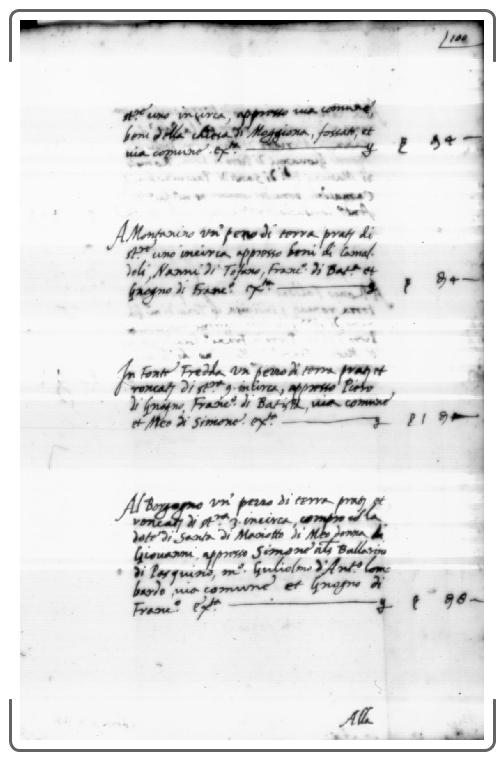 100
st.ro uno incirca, appresso via comune,
beni della chiesa di Moggiona, fossato, et
via comune. etc.
A Montanino un pezzo di terra prat. di
st.ro uno incirca appresso beni di Camal-
doli, Nanni di Tofano, Franc.o di Bat.a et
Gnogno di Franc.o etc.
In Fonte Fredda un pezzo di terra prat. et
roncat. di st.ra 9. incirca, appresso Piero
di Gnogno, Franc.o di Batista, via comune
et Meo di Simone etc.
Al Borgogno un pezzo di terra prat. et
roncat. di st.ra 3. incirca, compro co la
dote di Santa di Mariotto di Meo donna di
Giovanni appresso Simone als Ballerino
di Pasquino, m.o Gulielmo d'Ant.o Lom-
bardo, via comune et Gnogno di
Franc.o etc.
Alla